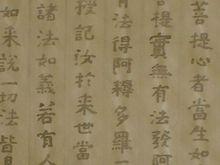 菩提心者當生如
菩提實無有法發阿
有法得阿耨多羅三
授記汝於來世當
諸法如義若有人
如來說一切法皆是